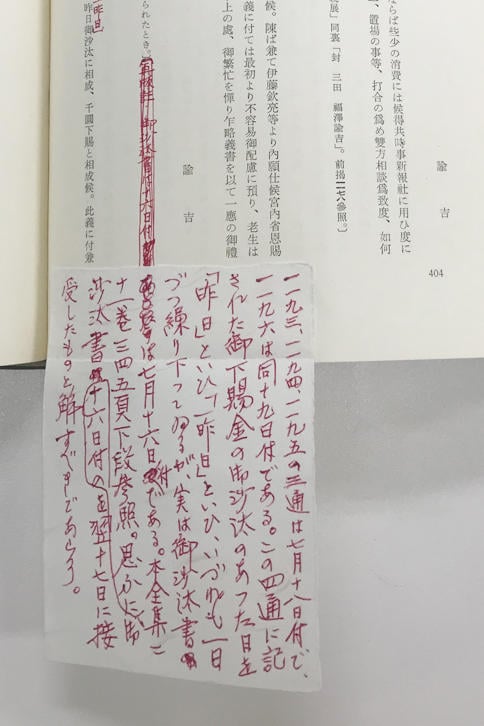 ならば些少の消費には候得共時事新報社に用ひ度に
、置場の事等、打合の爲め雙方相談爲致度、如何
諭吉
展」同裏「封 三田 福澤諭吉」。前揭一一七六參照。〕
候。陳ば兼て伊藤欽亮等より內願仕候宮內省恩賜
義に付ては最初より不容易御配慮に預り、老生は
上の處、御繁忙を憚り乍略義書を以て一應の御禮
諭吉
られたとき。
御沙汰書付十六日付
一昨日
昨日御沙汰に相成、千圓下賜と相成候。此義に付兼
404
一一九三、一一九四、一一九五の三通は七月十八日付で、
一一九六は同十九日付である。この四通に記
された御下賜金の御沙汰のあつた日を
「昨日」といひ「一昨日」といひ、いづれも一日
づつ繰り下つてゐるが、実は御沙汰書
は七月十六日付である。本全集二
十一卷三四五頁下段参照。思かに御
沙汰書十六日付のを翌十七日に接
受したものと解すべきであらう。